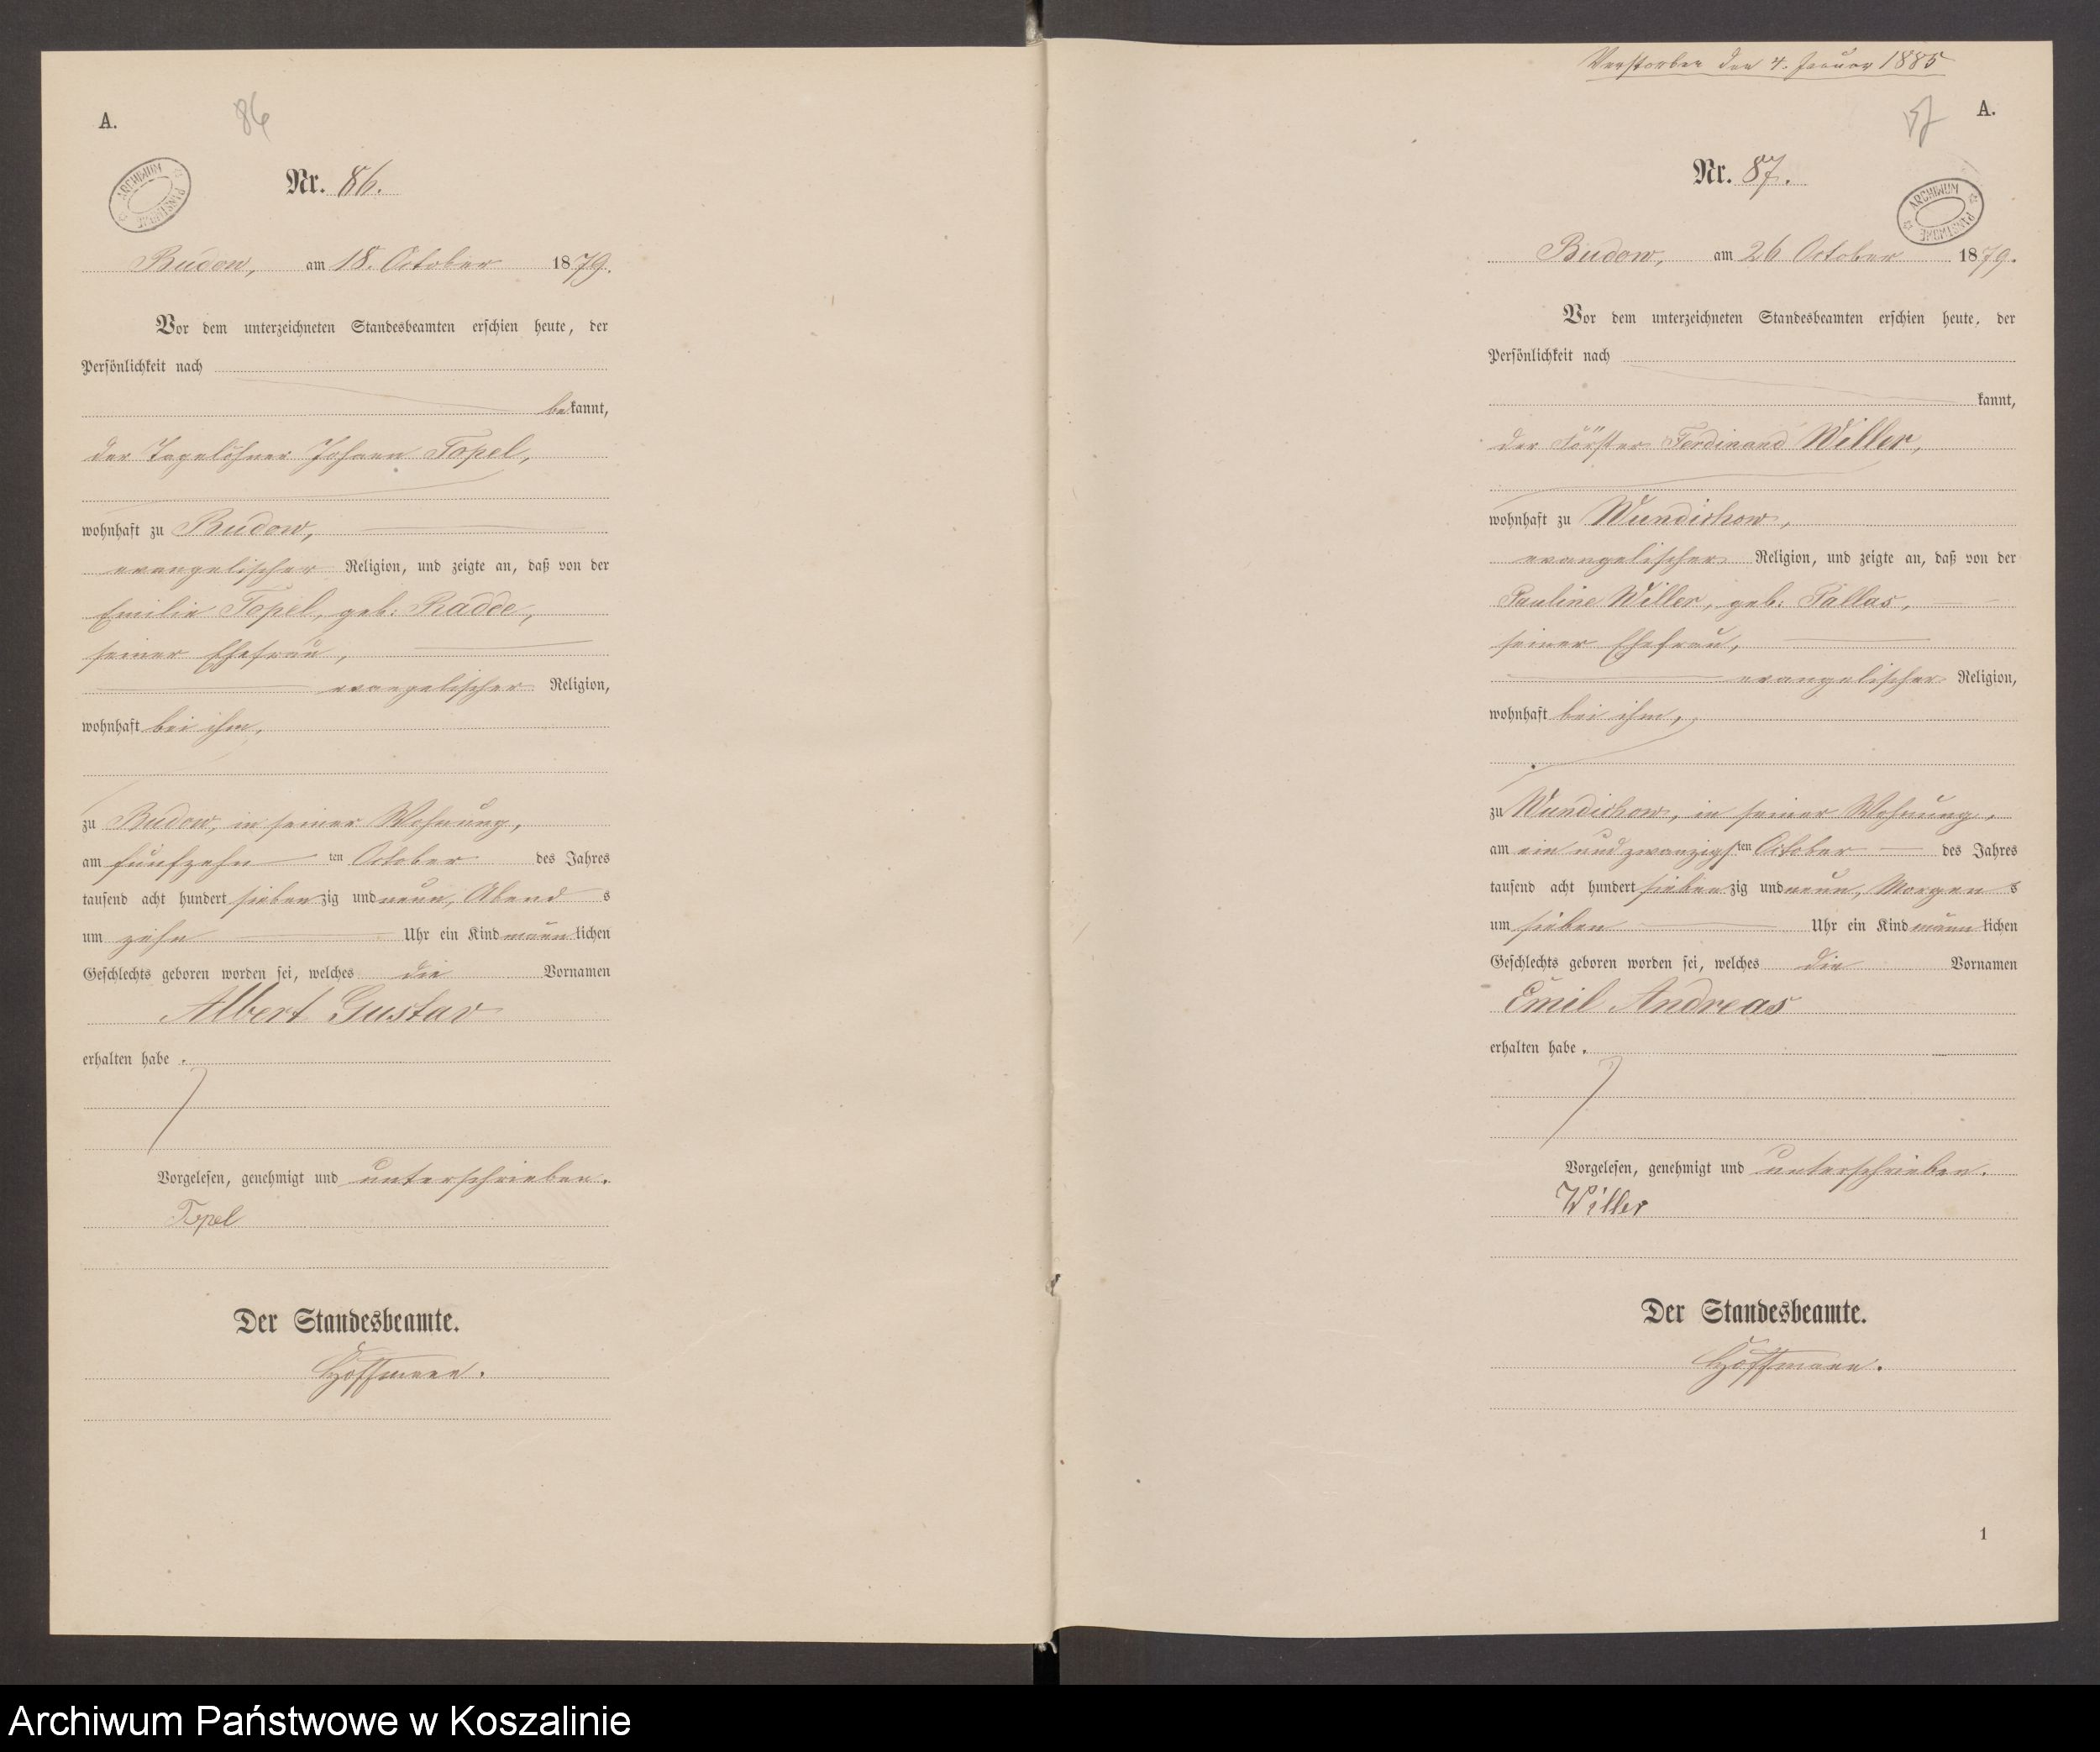 A.
86
Nr. 86.
ARCHIWUM PAŃSTWOWE
Budow, am 18. October 1879.
Vor dem unterzeichneten Standesbeamten erschien heute, der
Persönlichkeit nach
bekannt,
der Tagelöhner Johann Topel,
wohnhaft zu Budow,
evangelischer Religion, und zeigte an, daß von der
Emilie Topel, geb: Radde,
seiner Ehefrau,
evangelischer Religion,
wohnhaft bei ihm,
zu Budow, in seiner Wohnung,
am fünfzehn ten October des Jahres
tausend acht hundert siebenzig und neun, Abend s
um zehn Uhr ein Kind männlichen
Geschlechts geboren worden sei, welches die Vornamen
Albert Gustav
erhalten habe.
Vorgelesen, genehmigt und unterschrieben.
Topel
Der Standesbeamte.
Hoffmann.
Verstorben den 4. Januar 1885
A.
87
Nr. 87.
ARCHIWUM PAŃSTWOWE
Budow, am 26 October 1879.
Vor dem unterzeichneten Standesbeamten erschien heute, der
Persönlichkeit nach
kannt,
der Förster Ferdinand Willer,
wohnhaft zu Wundichow,
evangelischer Religion, und zeigte an, daß von der
Pauline Willer, geb: Pallas,
seiner Ehefrau,
evangelischer Religion,
wohnhaft bei ihm,
zu Wundichow, in seiner Wohnung,
am ein und zwanzigsten October des Jahres
tausend acht hundert siebenzig und neun, Morgen s
um sieben Uhr ein Kind männlichen
Geschlechts geboren worden sei, welches die Vornamen
Emil Andreas
erhalten habe.
Vorgelesen, genehmigt und unterschrieben.
Willer
Der Standesbeamte.
Hoffmann.
1
Archiwum Państwowe w Koszalinie